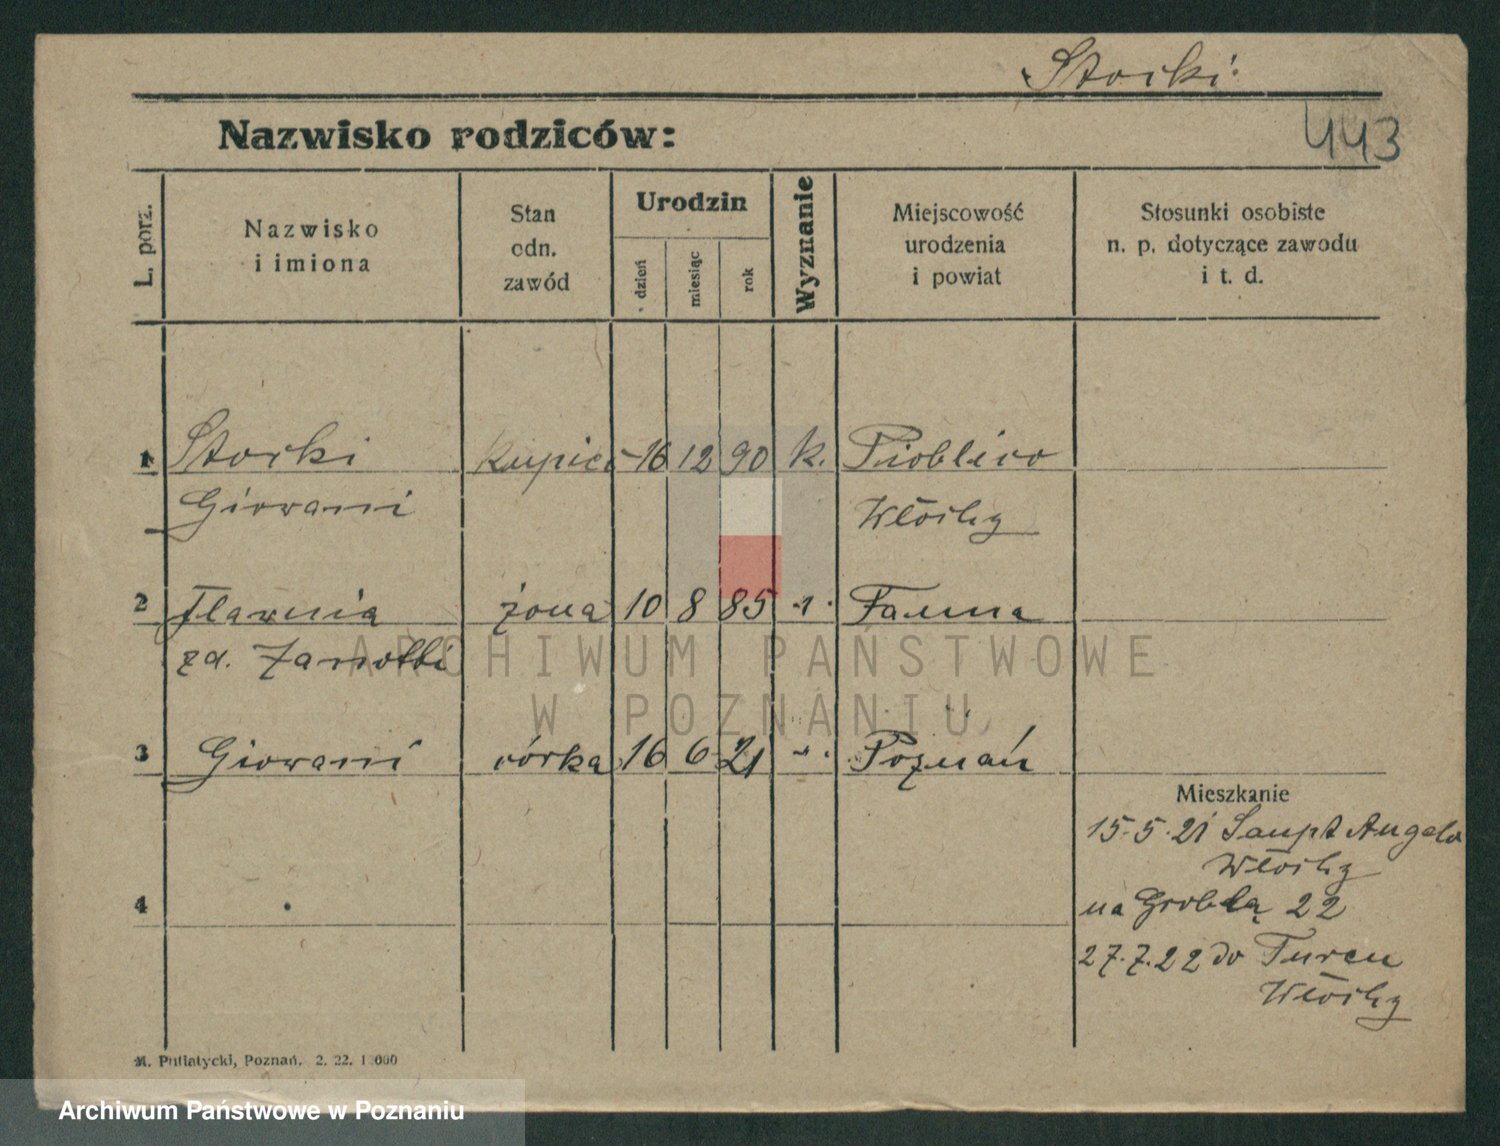 Storki
443
Nazwisko rodziców:
L. porz.
Nazwisko
i imiona
Stan
odn.
zawód
Urodzin
dzień
miesiąc
rok
Wyznanie
Miejscowość
urodzenia
i powiat
Stosunki osobiste
n. p. dotyczące zawodu
i t. d.
1 Storki kupiec 16 12 90 k. Pioblico
Giovani Włochy
2 Flawnia żona 10 8 85 Fanna
zd. Zanotti
3 Giovani córka 16 6 21 Poznań
4
Mieszkanie
15.5.21 Angelo
Włochy
na Groblą 22
27.7.22 do Turcu
Włochy
M. Putiatycki, Poznań. 2. 22.
ARCHIWUM PAŃSTWOWE
W POZNANIU
Archiwum Państwowe w Poznaniu